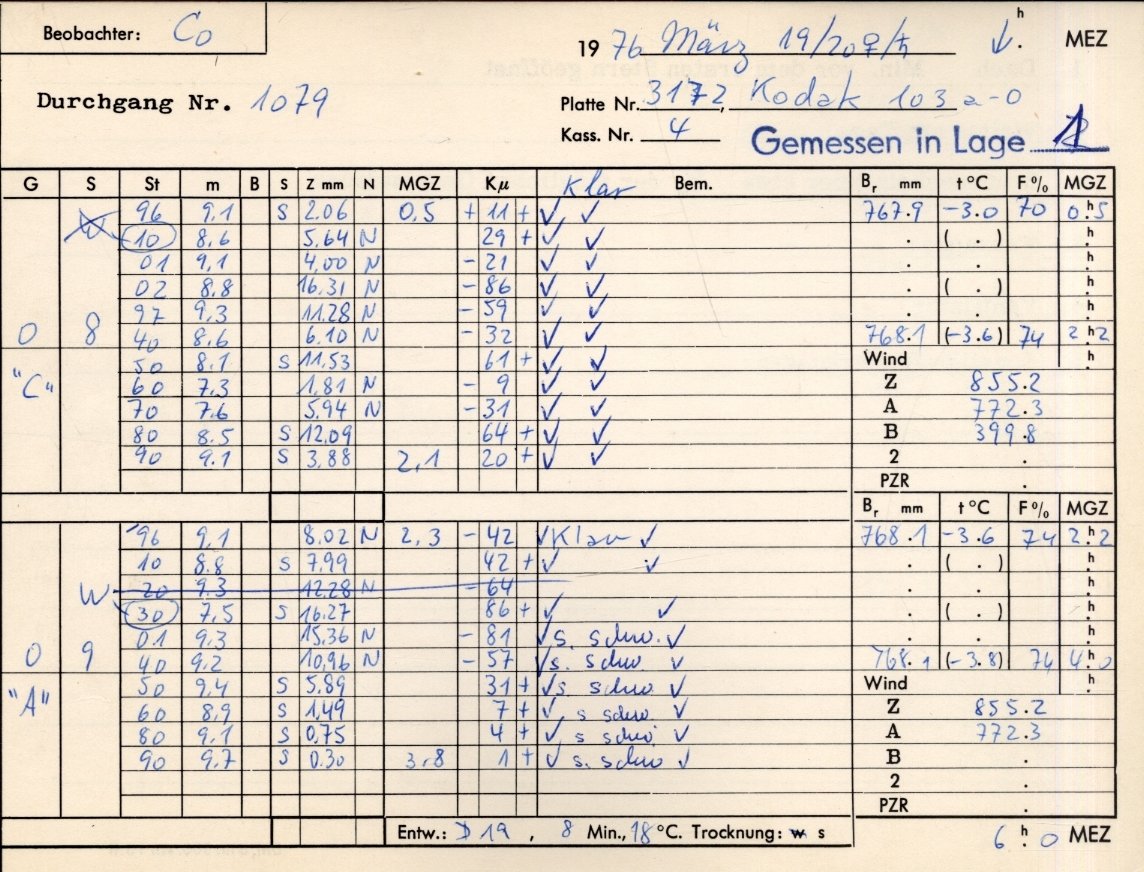 Beobachter: Co
19 76 März 19/20 ♀/♄ h . MEZ
Durchgang Nr. 1079
Platte Nr. 3172, Kodak 103 a-0
Kass. Nr. 4
Gemessen in Lage
G S St m B S Z mm N MGZ Kμ klar Bem. Br mm t °C F % MGZ
96 9.1 S 2.06 0,5 + 11 + ✓ ✓ 767.9 -3.0 70 0.5 h
W 10 8.6 5.64 N 29 + ✓ ✓ . ( . ) . h
01 9.1 4.00 N - 21 ✓ ✓ . . h
02 8.8 16.31 N - 86 ✓ ✓ . ( . ) . h
97 9.3 11.28 N - 59 ✓ ✓ . . h
0 8 40 8.6 6.10 N - 32 ✓ ✓ 768.1 (-3.6) 74 2.2 h
50 8.1 S 11.53 61 + ✓ ✓ Wind . h
"C" 60 7.3 1.81 N - 9 ✓ ✓ Z 855.2
70 7.6 5.94 N - 31 ✓ ✓ A 772.3
80 8.5 S 12.09 64 + ✓ ✓ B 399.8
90 9.1 S 3.88 2,1 20 + ✓ ✓ 2 .
PZR .
Br mm t °C F % MGZ
96 9.1 8.02 N 2,3 - 42 ✓ Klar ✓ 768.1 -3.6 74 2.2 h
10 8.8 S 7.99 42 + ✓ ✓ . ( . ) . h
W 20 9.3 12.28 N - 64 . . h
30 7.5 S 16.27 86 + ✓ ✓ . ( . ) . h
01 9.3 15.36 N - 81 ✓ s. schw. ✓ . . h
0 9 40 9.2 10.96 N - 57 ✓ s. schw ✓ 768.1 (-3.8) 74 4.0 h
50 9.4 S 5.89 31 + ✓ s schw ✓ Wind . h
"A" 60 8.9 S 1.49 7 + ✓ s schw. ✓ Z 855.2
80 9.1 S 0.75 4 + ✓ s schw. ✓ A 772.3
90 9.7 S 0.30 3,8 1 + ✓ s. schw ✓ B .
2 .
PZR .
Entw.: D 19 , 8 Min., 18 °C. Trocknung: w s
6 h . 0 MEZ